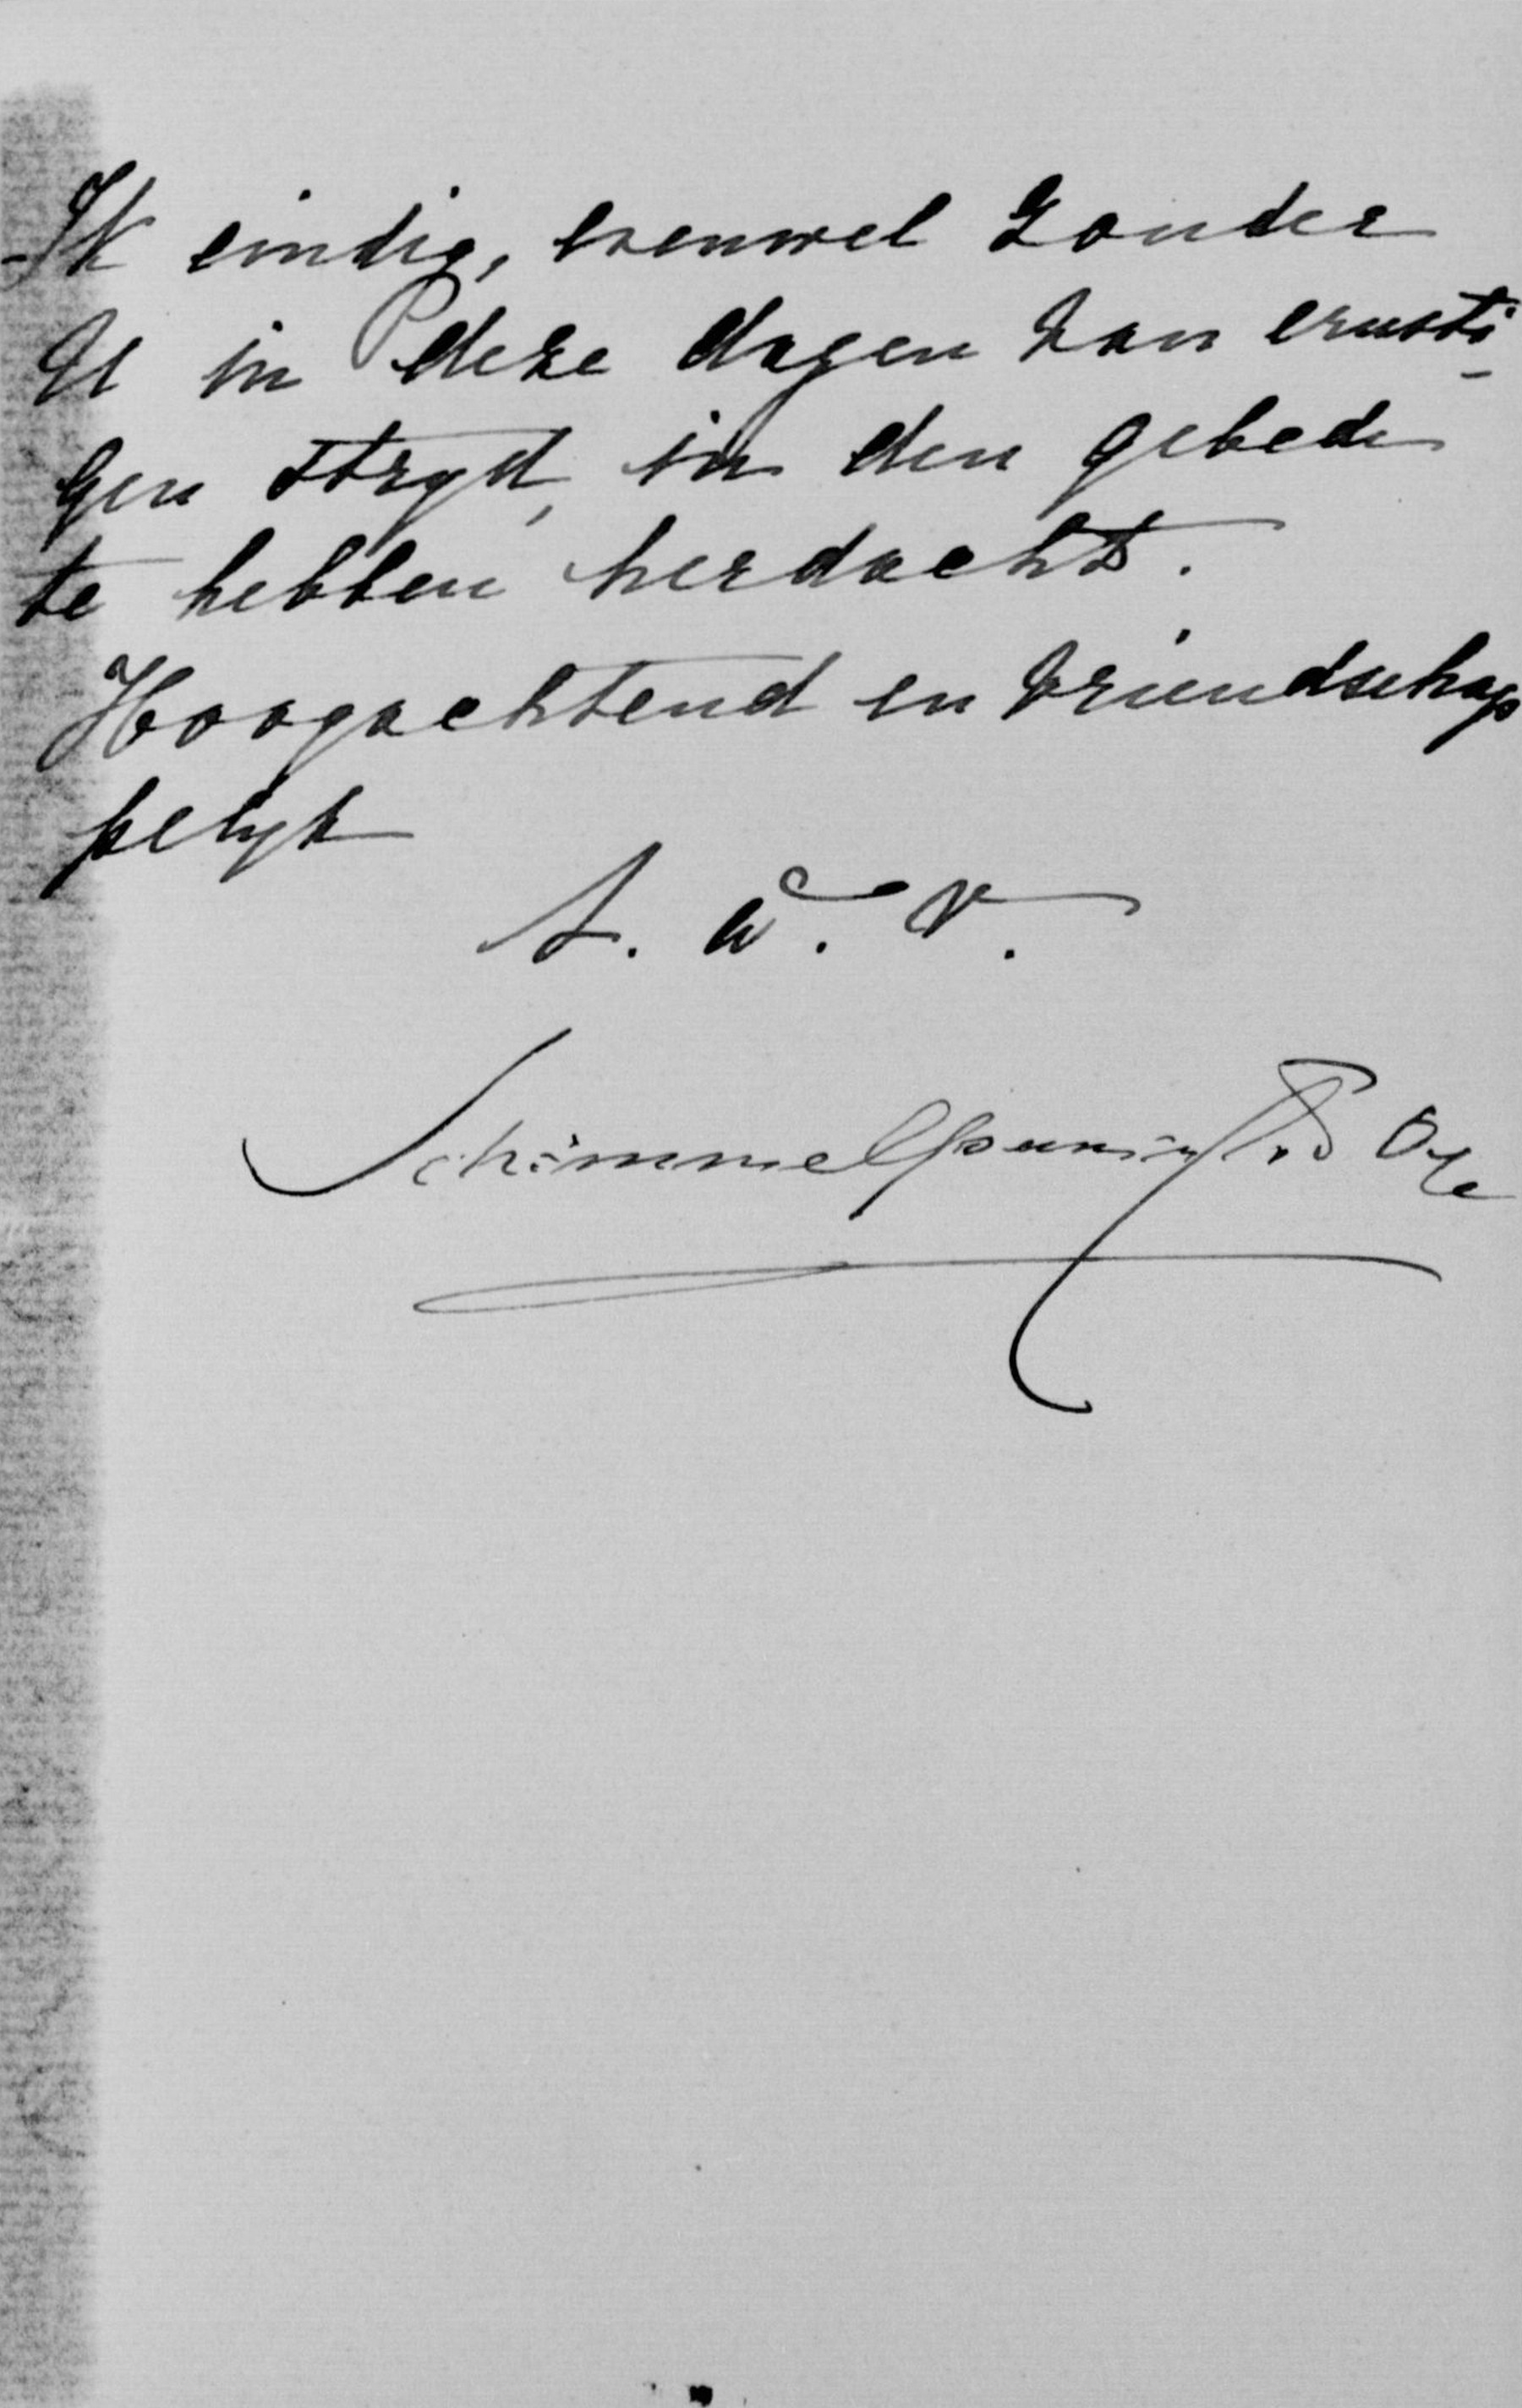 Ik eindig, evenwel zonder
U in deze dagen van ernsti-
gen strijd, in den gebede
te hebben herdacht.
Hoogachtend en vriendschap
pelijk
t. à. v.
Schimmelpenninck v d Oye